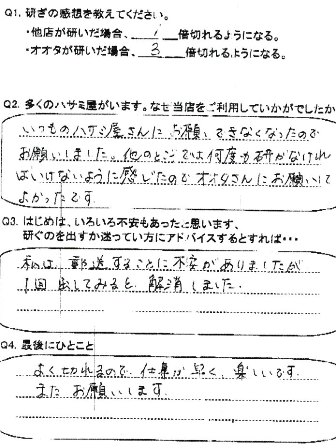 Q1. 研ぎの感想を教えてください。
・他店が研いだ場合、 1 倍切れるようになる。
・オオタが研いだ場合、 3 倍切れるようになる。
Q2. 多くのハサミ屋がいます。なぜ当店をご利用していかがでしたか
いつものハサミ屋さんにお願いできなくなったので
お願いしました。他のところでは何度か研がなければ
いけないように感じたのでオオタさんにお願いして
よかったです
Q3. はじめは、いろいろ不安もあったと思います、
研ぐのを出すか迷ってい方にアドバイスするとすれば・・・
私は 郵送することに不安がありましたが
1回 出してみると 解消しました.
Q4. 最後にひとこと
よく切れるので 仕事が早く、楽しいです.
また お願いします.